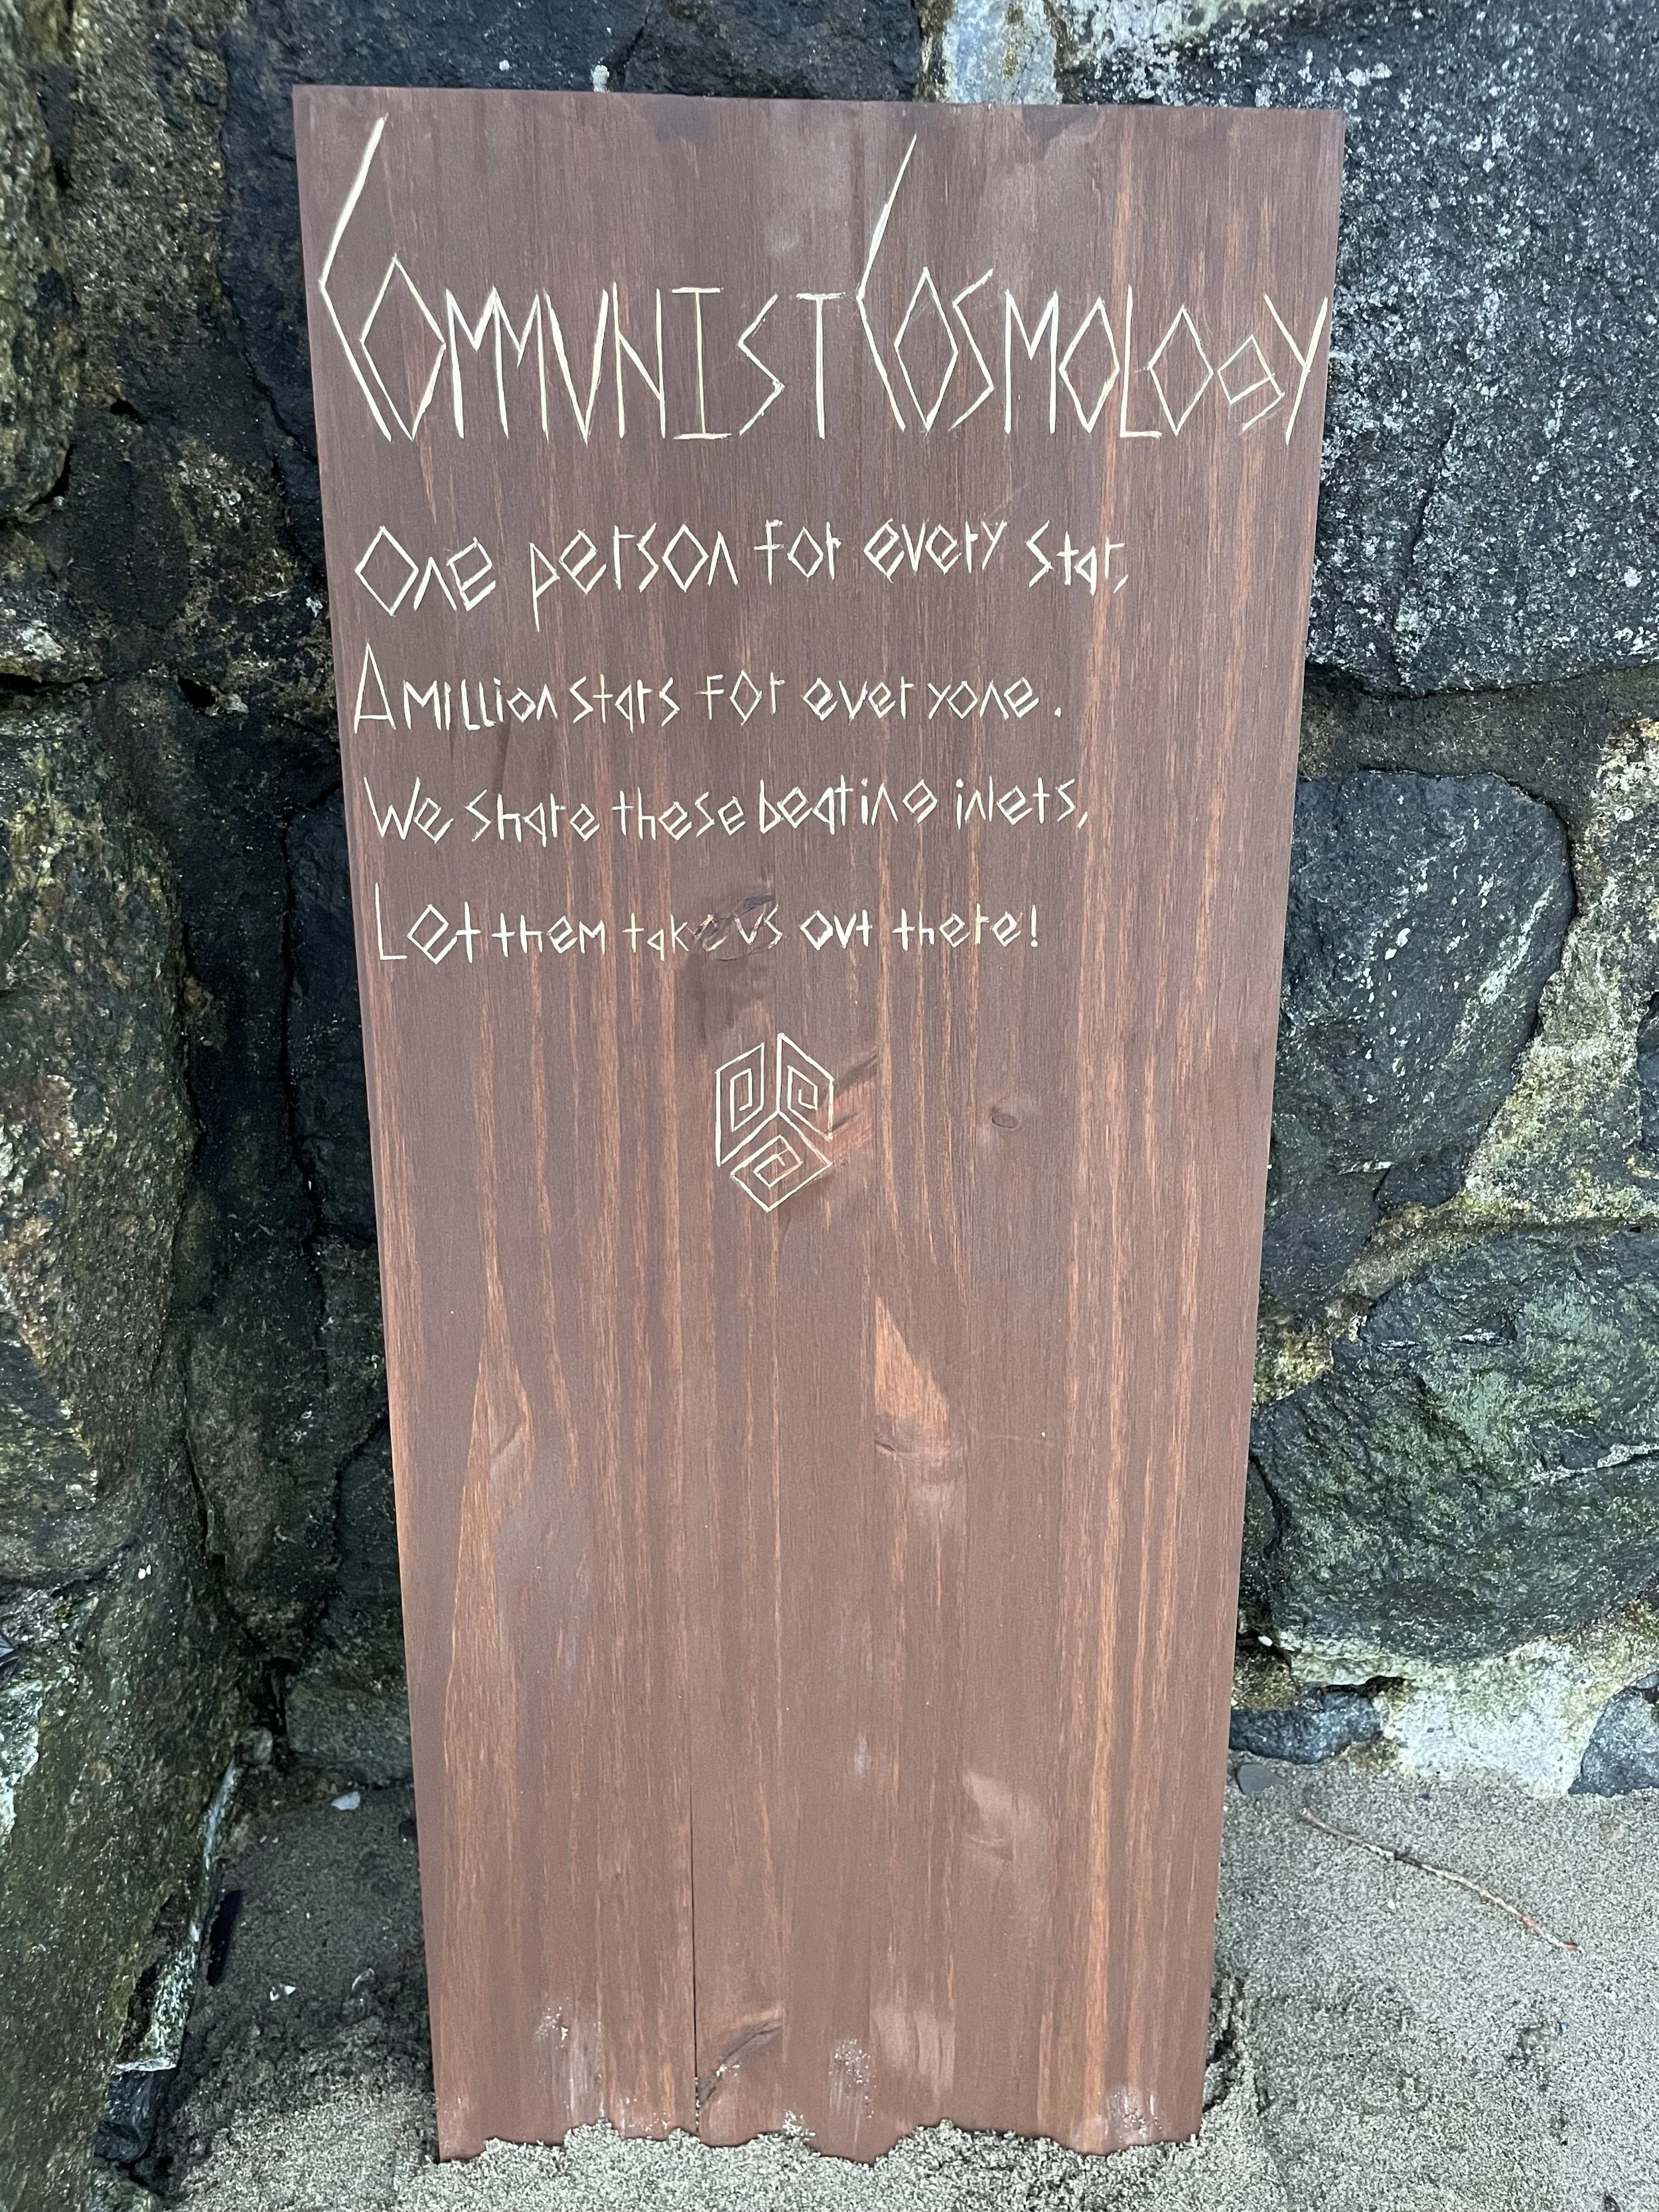 COMMUNIST COSMOLOGY
One person for every star,
A million stars for everyone.
We share these beating inlets,
Let them take us out there!